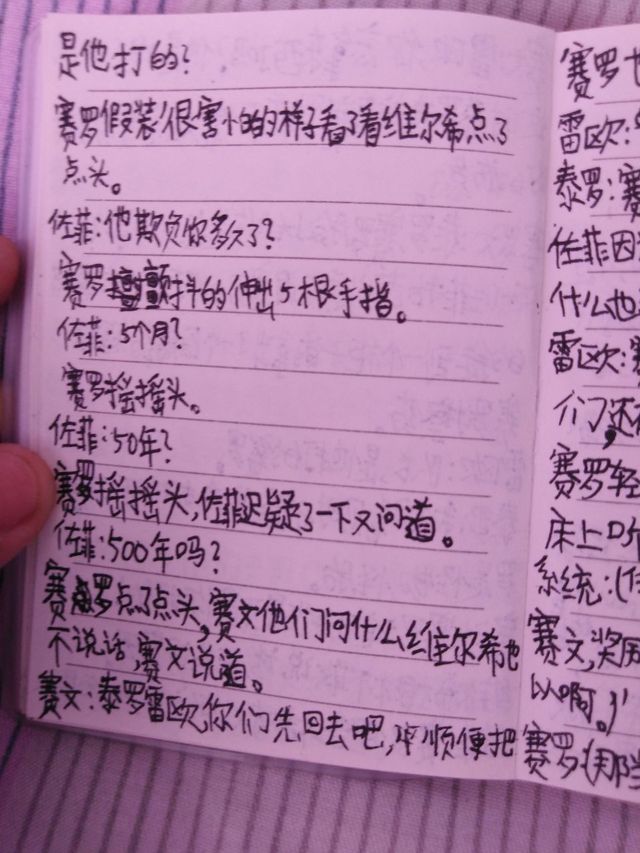 是他打的?
赛罗假装很害怕的样子看了看维尔希点了
点头。
佐菲:他欺负你多久了?
赛罗颤抖的伸出5根手指。
佐菲:5个月?
赛罗摇摇头。
佐菲:50年?
赛罗摇摇头,佐菲迟疑了一下又问道。
佐菲:500年吗?
赛罗点了点头,赛文他们问什么维尔希也
不说话,赛文说道。
赛文:泰罗雷欧你们先回去吧,顺便把
赛罗
雷欧:
泰罗:赛
佐菲因
什么也
雷欧:
们了,还
赛罗轻
床上
系统:(
赛文,奖
以啊。)
赛罗:(那